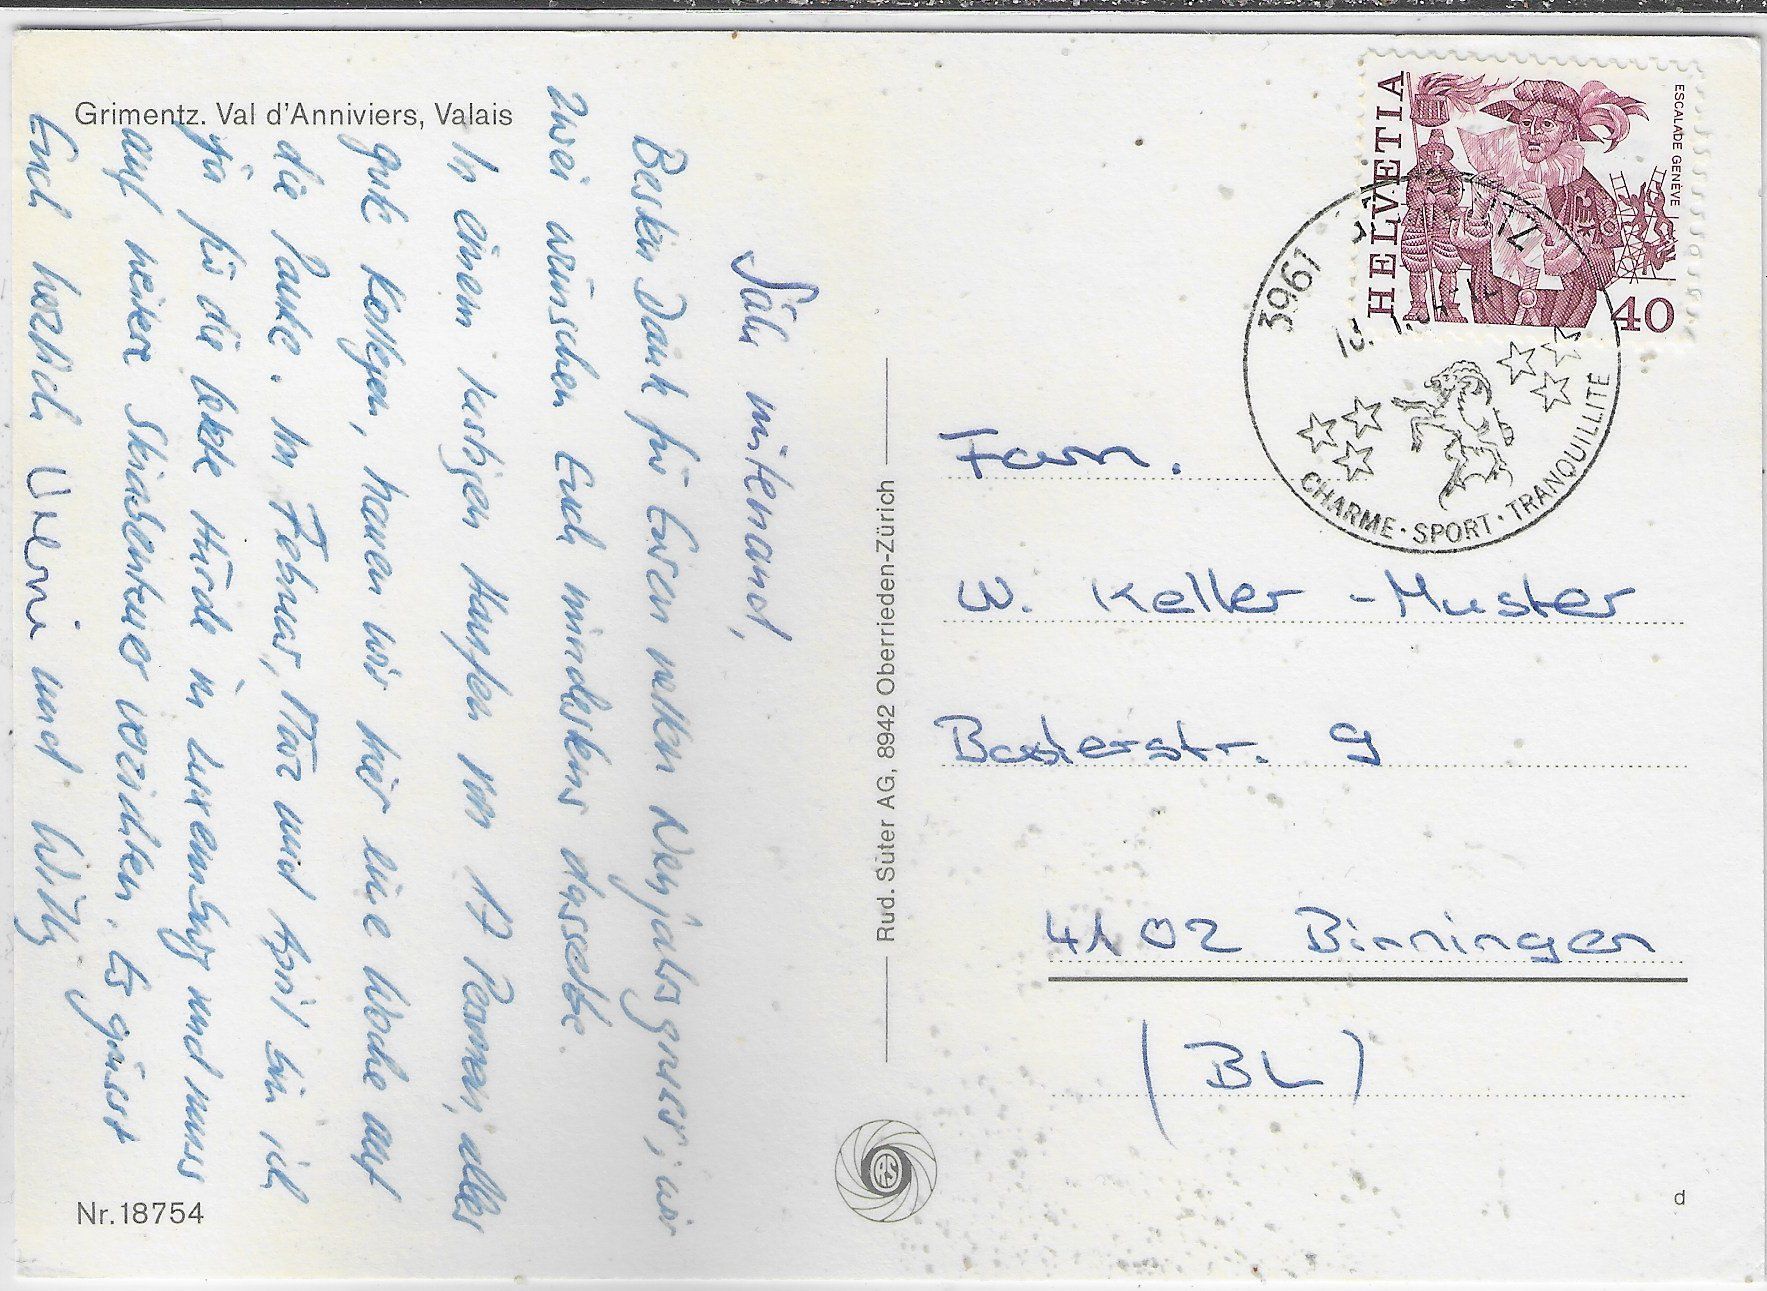 Grimentz. Val d'Anniviers, Valais
Sälü mitenand,
Besten Dank für Euren netten Neujahrsgruss; wir
zwei wünschen Euch mindestens dasselbe.
In einem lustigen Haufen von 17 Personen, alles
gute Kollegen, hauen wir hier eine Woche auf
die Pauke. Im Februar, März und April bin ich
ja für die letzte Hürde in Luxemburg und muss
auf weitere Skiabenteuer verzichten. Es grüsst
Euch herzlich Ueni und Willy
Nr. 18754
Rud. Süter AG, 8942 Oberrieden-Zürich
RS
HELVETIA
ESCALADE GENÈVE
40
3961
CHARME · SPORT · TRANQUILLITE
Fam.
W. Keller-Muster
Baslerstr. 9
4102 Binningen
(BL)
d